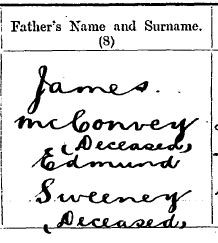 Father's Name and Surname.
(8)
James.
McConvey
(Deceased)
Edmund
Sweeney
(Deceased)